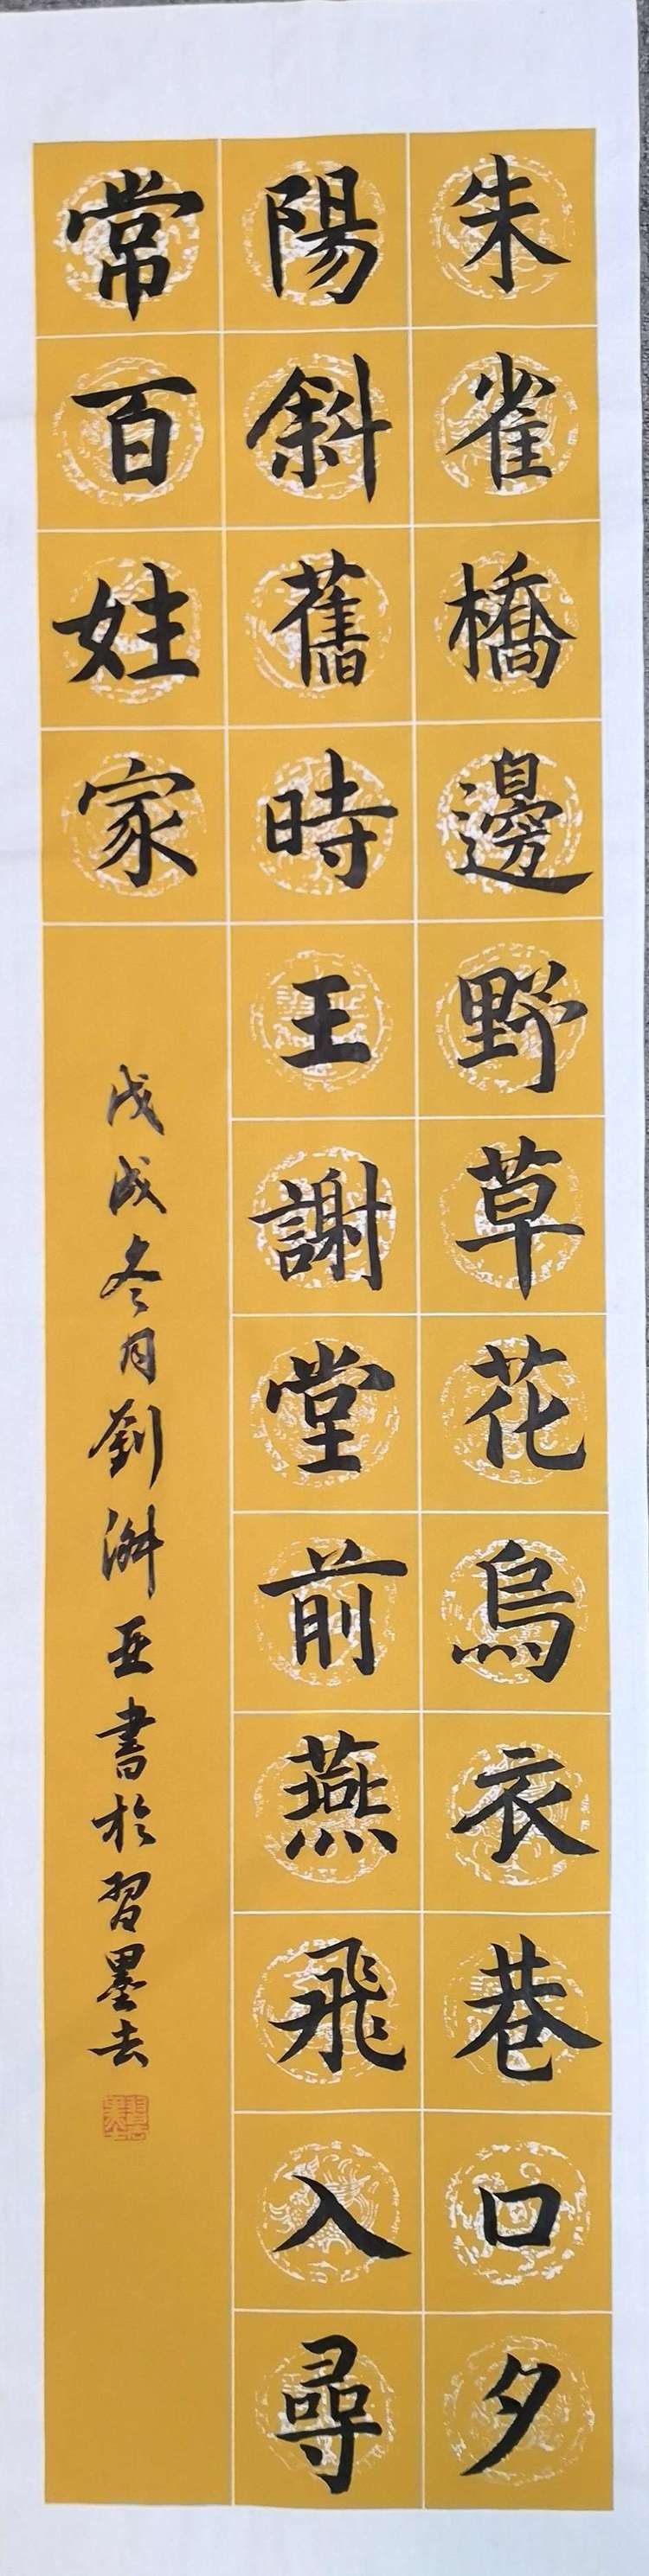 朱雀橋邊野草花烏衣巷口夕
陽斜舊時王謝堂前燕飛入尋
常百姓家
戊戌冬月劉 亚書於習墨去